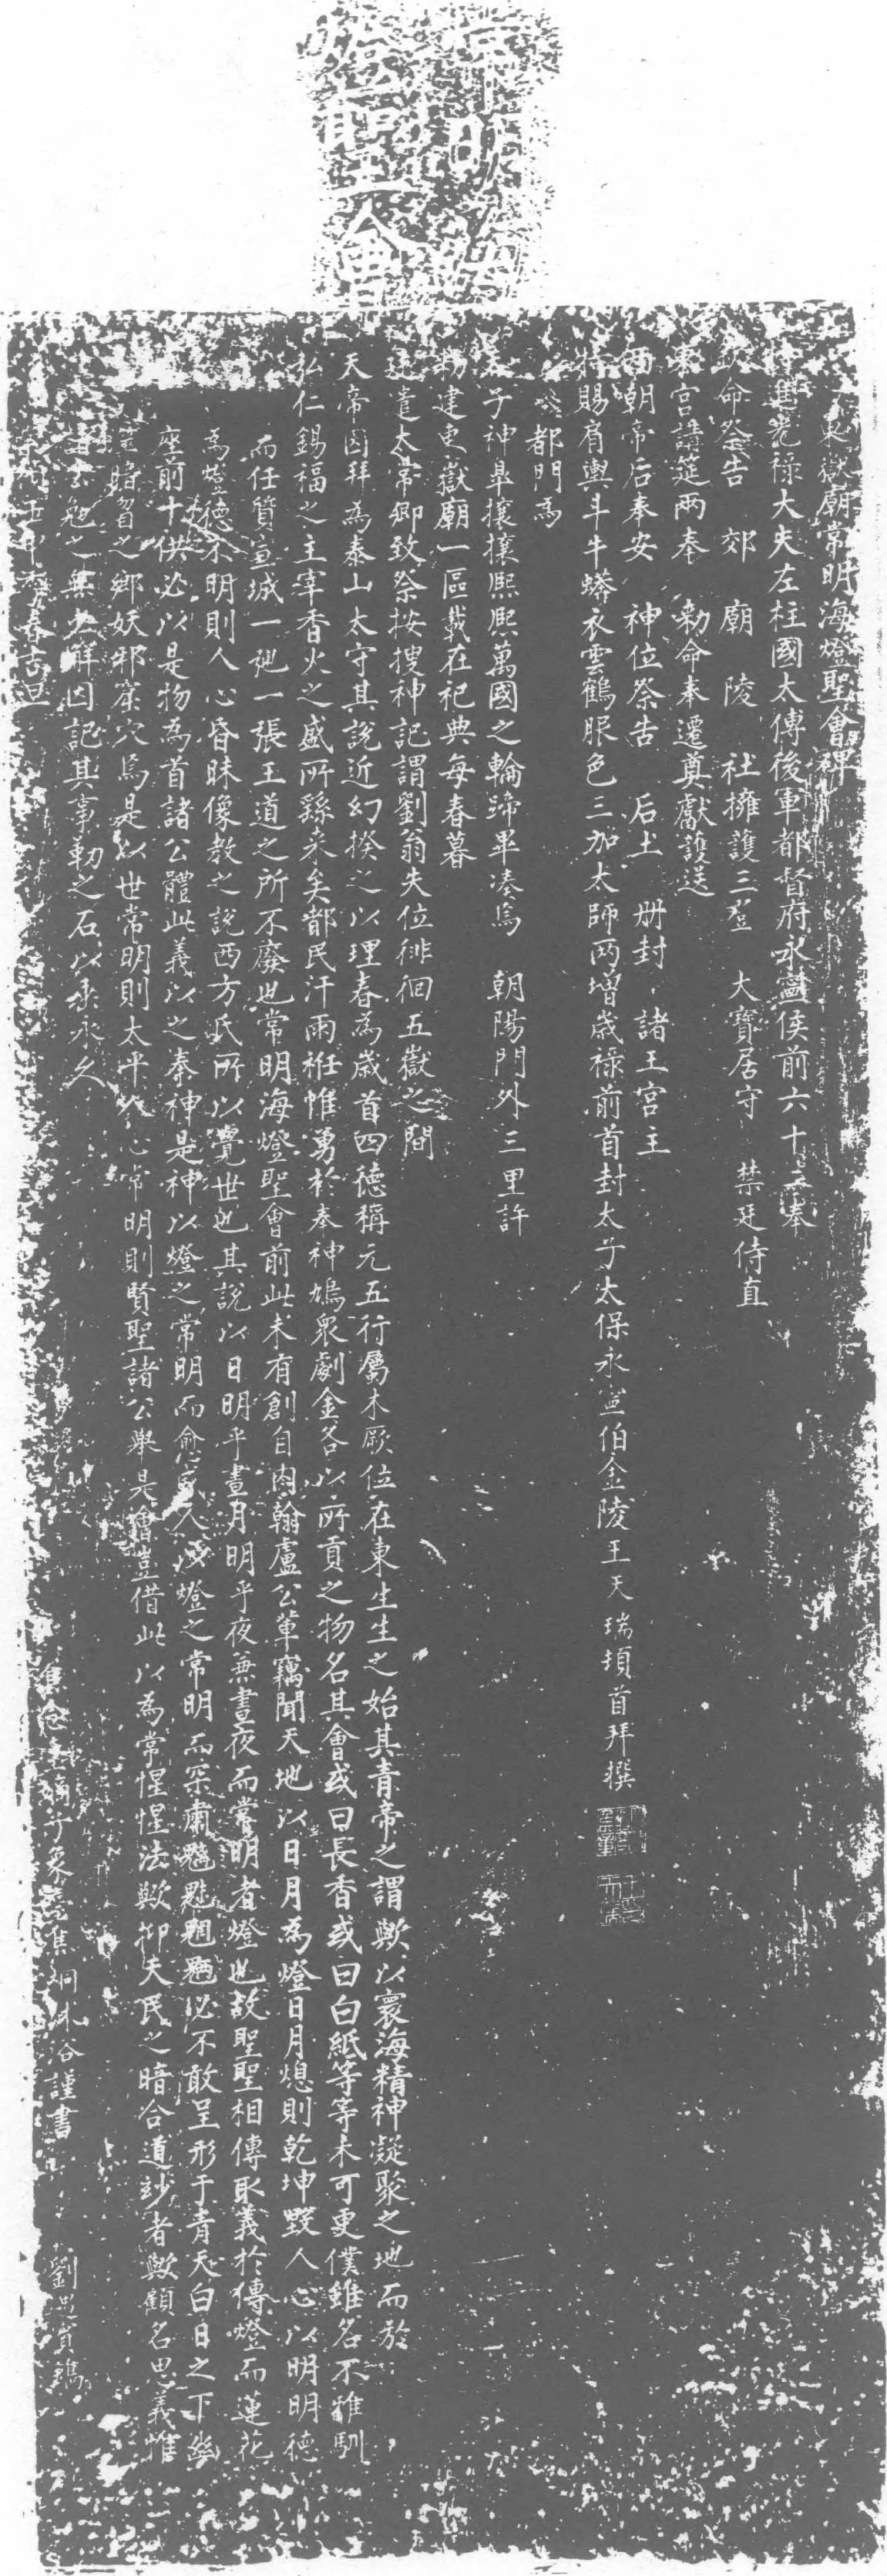 常明海
燈聖會
東嶽廟常明海燈聖會碑
進光祿大夫左柱國太傅後軍都督府永寧侯前六十二奉
命祭告 郊 廟 陵 社擁護三登 大寶居守 禁廷侍直
東宮講筵兩奉 勅命奉遷奠獻護送
兩朝帝后奉安 神位祭告 后土 冊封 諸王宮主
特賜肩輿斗牛蟒衣雲鶴服色三加太師兩增歲祿前首封太子太保永寧伯金陵王天瑞頓首拜撰
都門為
天子神皐攘攘熙熙萬國之輪蹄畢湊焉 朝陽門外三里許
勅建東嶽廟一區載在祀典每春暮
遣太常卿致祭按搜神記謂劉翁失位徘徊五嶽之間
天帝因拜為泰山太守其說近幻揆之以理春為歲首四德稱元五行屬木厥位在東生生之始其青帝之謂歟以寰海精神凝聚之地而於
弘仁錫福之主宰香火之盛所繇來矣都民汗雨袵帷勇於奉神鳩衆劇金各以所貢之物名其會或曰長香或曰白紙等等未可更僕雖名不雅馴
而任質宣城一弛一張王道之所不廢也常明海燈聖會前此未有創自内翰盧公輩竊聞天地以日月為燈日月熄則乾坤毀人心以明明德
為燈德不明則人心昏昧像教之說西方氏所以覺世也其說以日明乎晝月明乎夜兼晝夜而常明者燈也故聖聖相傳取義於傳燈而蓮花
座前十供必以是物為首諸公體此義以之奉神是神以燈之常明而愈 人以燈之常明而罙肅魑魅魍魎必不敢呈形于青天白日之下幽
暗習之鄉妖邪窟穴焉是以世常明則太平人心常明則賢聖諸公舉是會豈借此以為常惺惺法歟抑夫民之暗合道妙者歟顧名思義惟
諸公勉之無 解因記其事勒之石以垂永久
春吉旦 謹書 劉 鐫